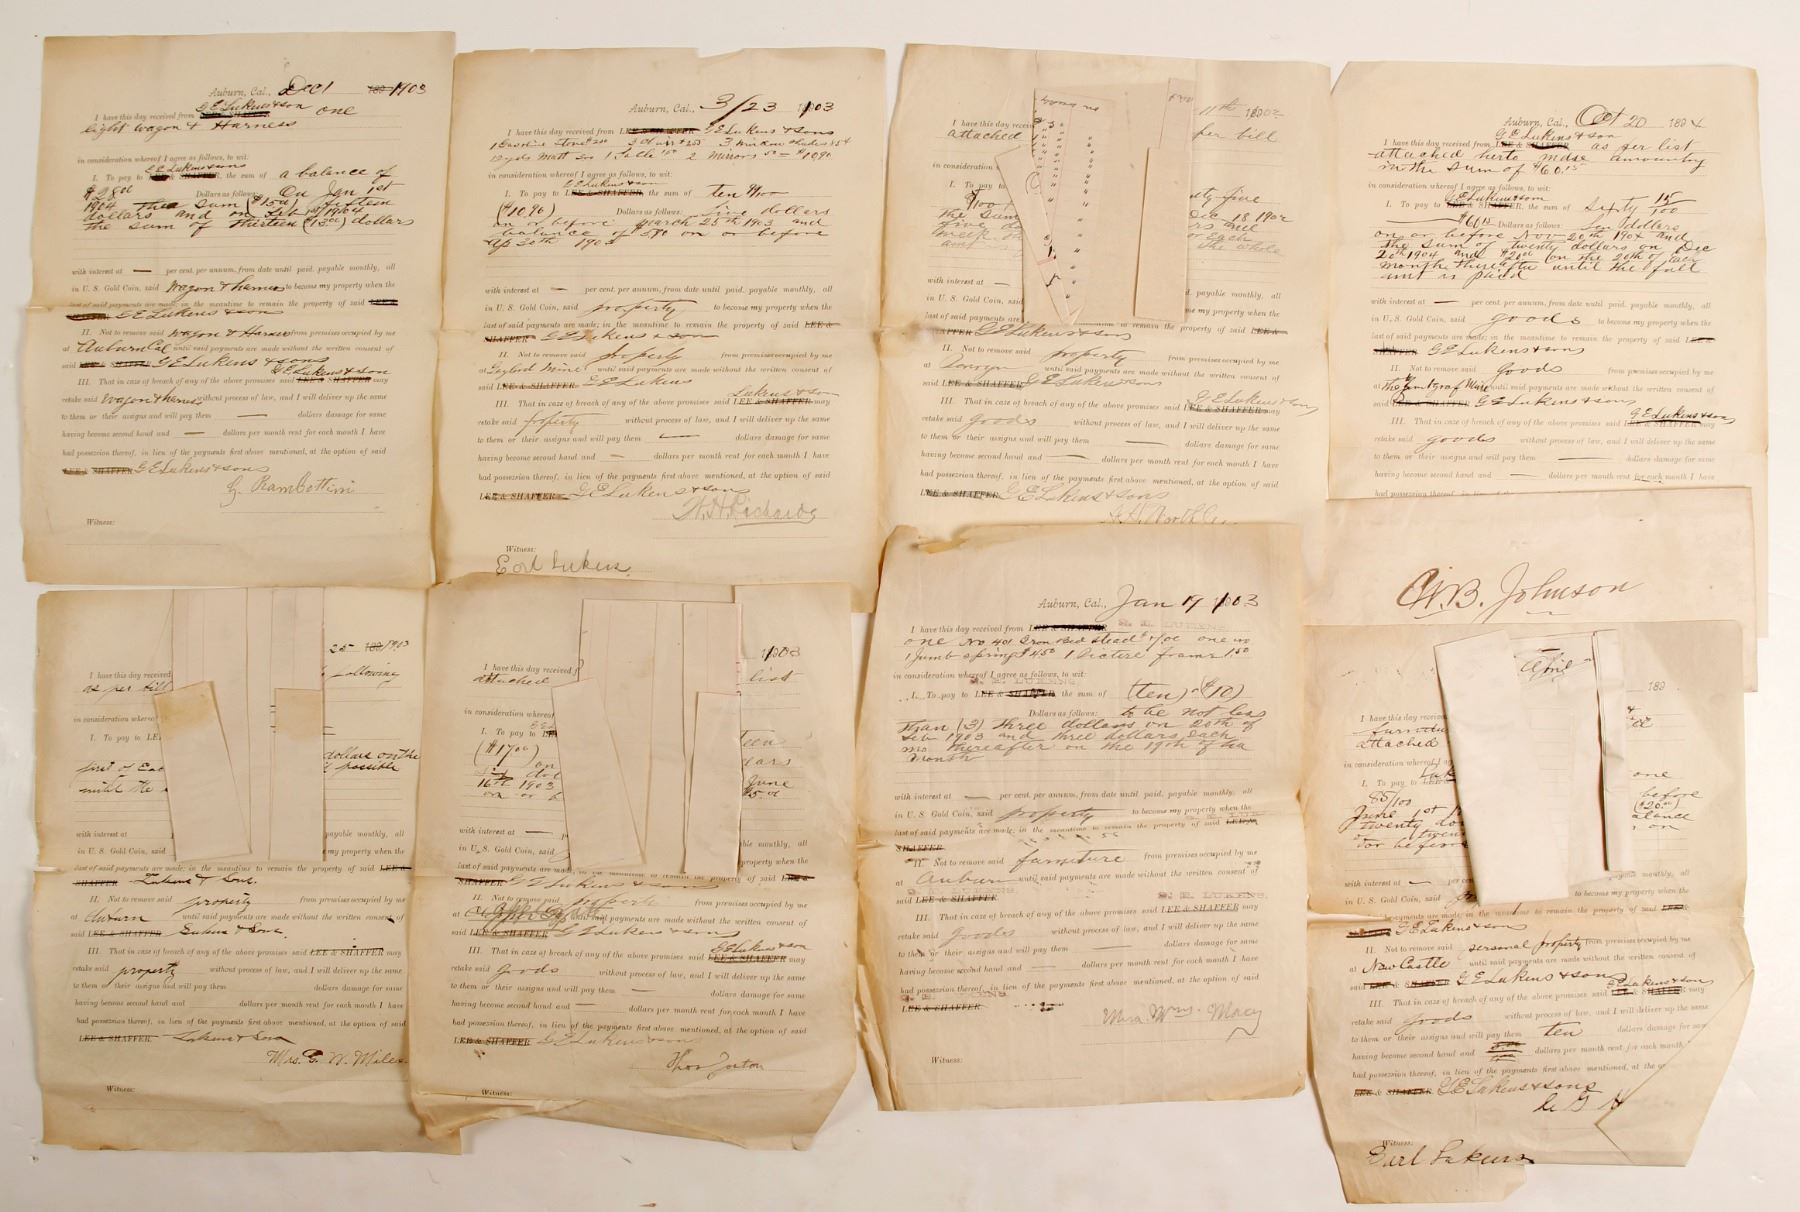 Auburn, Cal., Dec 1 189 1903
I have this day received from G E Lukens & son one
light wagon & Harness
in consideration whereof I agree as follows, to wit:
I. To pay to G E Lukens & sons the sum of a balance of
$28.00 Dollars as follows: On Jan 1st
1904 the sum ($15.00) fifteen
dollars and on Feb 1st 1904
the sum of thirteen (13.00) dollars
with interest at — per cent. per annum, from date until paid, payable monthly, all
in U. S. Gold Coin, said Wagon & harness to become my property when the
last of said payments are made; in the meantime to remain the property of said LEE &
SHAFFER G E Lukens & sons
II. Not to remove said Wagon & Harness from premises occupied by me
at Auburn Cal until said payments are made without the written consent of
said LEE & SHAFFER G E Lukens & sons
G E Lukens & son
III. That in case of breach of any of the above premises said LEE & SHAFFER may
retake said Wagon & harness without process of law, and I will deliver up the same
to them or their assigns and will pay them — dollars damage for same
having become second hand and — dollars per month rent for each month I have
had possession thereof, in lieu of the payments first above mentioned, at the option of said
LEE & SHAFFER G E Lukens & sons
G. Rambottini
Witness:
Auburn, Cal., 3/23 1903
I have this day received from LEE & SHAFFER G E Lukens & sons
1 Gasoline Stove
2 Mirrors
in consideration whereof I agree as follows, to wit:
G E Lukens & son
I. To pay to LEE & SHAFFER the sum of ten
($10.90) Dollars as follows: five dollars
on or before March 25th 1903 and
balance of on or before
Ap 20th 190
with interest at — per cent. per annum, from date until paid, payable monthly, all
in U. S. Gold Coin, said property to become my property when the
last of said payments are made; in the meantime to remain the property of said LEE &
SHAFFER G E Lukens & son
II. Not to remove said property from premises occupied by me
at Gaylord Mine until said payments are made without the written consent of
said LEE & SHAFFER G E Lukens
Lukens & son
III. That in case of breach of any of the above premises said LEE & SHAFFER may
retake said property without process of law, and I will deliver up the same
to them or their assigns and will pay them — dollars damage for same
having become second hand and — dollars per month rent for each month I have
had possession thereof, in lieu of the payments first above mentioned, at the option of said
LEE & SHAFFER G E Lukens & son
W. H. Richards
Witness:
Earl Lukens
11th 1902
I have this day recei
attached per bill
in consideration
I. To pay to
$100 ty five
the sum Dec 18, 1902
five do
week each
amt the whole
with interest payable monthly, all
in U. S. Gold Coin, said me my property when the
last of said payments are made; in the meantime to remain the property of said LEE &
SHAFFER G E Lukens & sons
II. Not to remove said property from premises occupied by me
at until said payments are made without the written consent of
said LEE & SHAFFER G E Lukens & sons
G E Lukens & son
III. That in case of breach of any of the above premises said LEE & SHAFFER may
retake said goods without process of law, and I will deliver up the same
to them or their assigns and will pay them — dollars damage for same
having become second hand and — dollars per month rent for each month I have
had possession thereof, in lieu of the payments first above mentioned, at the option of said
LEE & SHAFFER G E Lukens & sons
Auburn, Cal., Oct 20 1894
G E Lukens & son
I have this day received from LEE & SHAFFER as per list
attached herto mdse amounting
in the sum of $60.15
in consideration whereof I agree as follows, to wit:
G E Lukens & son
I. To pay to LEE & SHAFFER, the sum of Sixty 15/100
$60.15 Dollars as follows: Ten dollars
on or before Nov 20th 1904 and
the sum of twenty dollars on Dec
20th 1904 and $20.00 on the 20th of each
month thereafter until the full
amt is paid
with interest at — per cent. per annum, from date until paid, payable monthly, all
in U. S. Gold Coin, said goods to become my property when the
last of said payments are made; in the meantime to remain the property of said LEE &
SHAFFER G E Lukens & sons
II. Not to remove said goods from premises occupied by me
until said payments are made without the written consent of
said LEE & SHAFFER G E Lukens & sons
G E Lukens & sons
III. That in case of breach of any of the above premises said LEE & SHAFFER may
retake said goods without process of law, and I will deliver up the same
to them or their assigns and will pay them — dollars damage for same
having become second hand and — dollars per month rent for each month I have
had possession thereof, in lieu of the payments first above mentioned, at the option of said
W. B. Johnson
25 189 1903
I have this day recei following
as per bill
in consideration whereof
I. To pay to LE
dollars on the
first of Eac if possible
until the
with interest at payable monthly, all
in U. S. Gold Coin, my property when the
last of said payments are made; in the meantime to remain the property of said LEE &
SHAFFER Lukens & Sons.
II. Not to remove said property from premises occupied by me
at Auburn until said payments are made without the written consent of
said LEE & SHAFFER Lukens & Sons.
III. That in case of breach of any of the above premises said LEE & SHAFFER
retake said property without process of law, and I will deliver up the same
to them or their assigns and will pay them dollars damage for same
having become second hand and dollars per month rent for each month I have
had possession thereof, in lieu of the payments first above mentioned, at the option of said
LEE & SHAFFER Lukens & Sons
Mrs. G. W. Miles
Witness:
1903
I have this day received f
attached list
in consideration whereof
I. To pay to LE
($17.00) on teen
six dol lars
16th 1903 June
on or b $5.00
with interest at — ble monthly, all
in U. S. Gold Coin, said property when the
last of said payments are made; in the meantime to remain the property of said LEE &
SHAFFER G E Lukens & sons
II. Not to remove said property from premises occupied by me
at until said payments are made without the written consent of
said LEE & SHAFFER G E Lukens & sons
G E Lukens & son
III. That in case of breach of any of the above premises said LEE & SHAFFER may
retake said goods without process of law, and I will deliver up the same
to them or their assigns and will pay them — dollars damage for same
having become second hand and — dollars per month rent for each month I have
had possession thereof, in lieu of the payments first above mentioned, at the option of said
LEE & SHAFFER G E Lukens & sons
Witness:
Auburn, Cal., Jan 19 1903
I have this day received from LEE & SHAFFER G. E. LUKENS.
one No 401 Iron Bed stead one
1 Jumb spring $4.50 1 Picture frame 1.50
in consideration whereof I agree as follows, to wit:
G. E. LUKENS
I. To pay to LEE & SHAFFER the sum of (ten) ($10)
Dollars as follows: to be not less
than (3) three dollars on 20th of
Feb 1903 and three dollars each
mo thereafter on the 19th of ea
month
with interest at — per cent. per annum, from date until paid, payable monthly, all
in U. S. Gold Coin, said property to become my property when the
last of said payments are made; in the meantime to remain the property of said LEE &
SHAFFER
II. Not to remove said furniture from premises occupied by me
at Auburn until said payments are made without the written consent of
said LEE & SHAFFER G. E. LUKENS.
III. That in case of breach of any of the above premises said LEE & SHAFFER may
retake said goods without process of law, and I will deliver up the same
to them or their assigns and will pay them — dollars damage for same
having become second hand and — dollars per month rent for each month I have
had possession thereof, in lieu of the payments first above mentioned, at the option of said
LEE & SHAFFER
Mrs. Wm. Macy
Witness:
April 189
I have this day receive
furnitu
attached
in consideration whereof I ag
I. To pay to Luk one
85/100 before
June 1st ($20.00)
twenty do alance
twen on
or before
with interest at — per cen payable monthly, all
in U. S. Gold Coin, said to become my property when the
last of said payments are made; in the meantime to remain the property of said LEE &
SHAFFER G E Lukens & son
II. Not to remove said personal property from premises occupied by me
at New Castle until said payments are made without the written consent of
said LEE & SHAFFER G E Lukens & sons
G E Lukens & sons
III. That in case of breach of any of the above premises said LEE & SHAFFER may
retake said goods without process of law, and I will deliver up the same
to them or their assigns and will pay them ten dollars damage for same
having become second hand and dollars per month rent for each month
had possession thereof, in lieu of the payments first above mentioned, at the o
LEE & SHAFFER G E Lukens & sons
Witness:
Earl Lukens